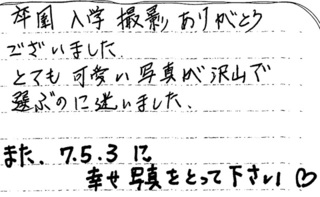 卒園 入学 撮影 ありがとう
ございました.
とても可愛い写真が沢山で
選ぶのに迷いました.
また. 7.5.3 に
幸せ写真をとって下さい♡